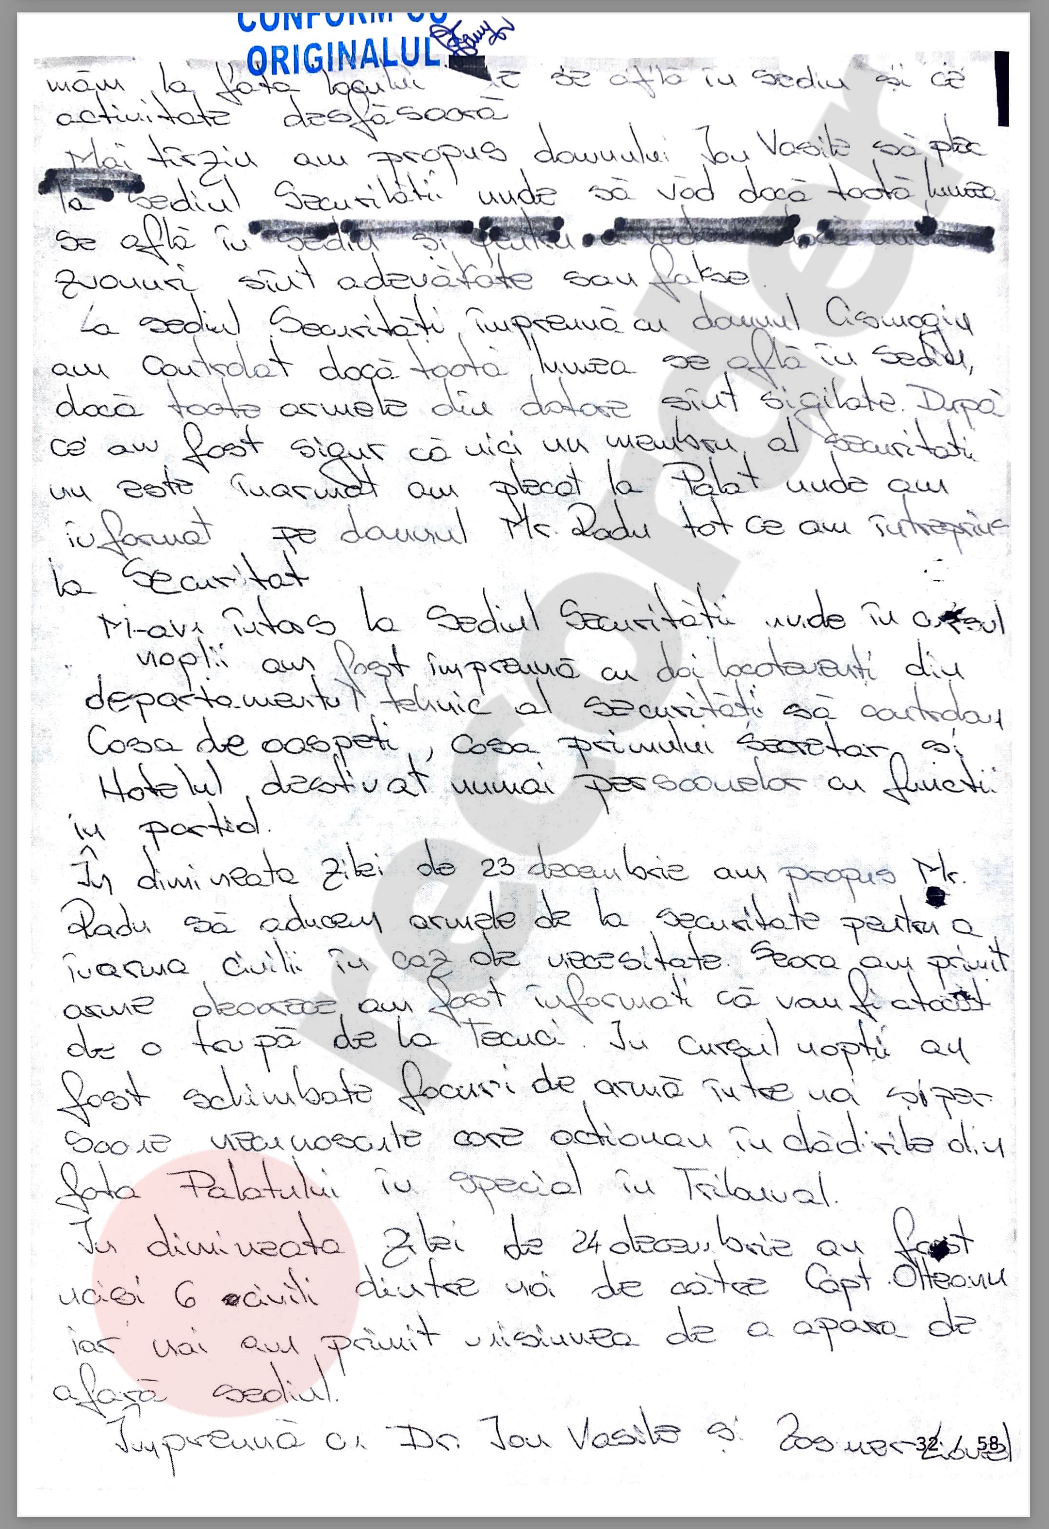 CONFORM CU
ORIGINALUL
măm la fața locului se află în sediu și ce
activitate desfășoară
Mai tîrziu am propus domnului Ion Vasile să plec
la sediul Securității unde să văd dacă toată lumea
se află în sediu și pentru a vedea
zvonuri sînt adevărate sau false.
La sediul Securității împreună cu domnul Cismagiu
am controlat dacă toată lumea se află în sediu,
dacă toate armele din dotare sînt sigilate. După
ce am fost sigur că nici un membru al securitatii
nu este înarmat am plecat la Palat unde am
informat pe domnul Mr. Radu tot ce am întreprins
la Securitat
M-am întors la sediul Securității unde în cursul
nopții am fost împreună cu doi locotenenți din
departamentul tehnic al securității să controlam
Casa de oaspeți, casa primului secretar și
Hotelul destivat numai persoanelor cu functii
în partid.
În dimineata zilei de 23 decembrie am propus Mr.
Radu să aducem armele de la securitate pentru a
înarma civilii în caz de necesitate. Seara am primit
arme deoarece am fost informati că vom fi atacat
de o trupă de la Tecuci. In cursul nopții au
fost schimbate focuri de armă între noi și per-
soane necunoscute care actionau în clădirile din
fata Palatului în special în Tribunal.
In dimineata zilei de 24 decembrie au fost
ucisi 6 civili dintre noi de către Capt. Olteanu
iar noi am primit misiunea de a apara de
afară sediul.
Împreună cu Dr. Ion Vasile și
32 / 58
recorder